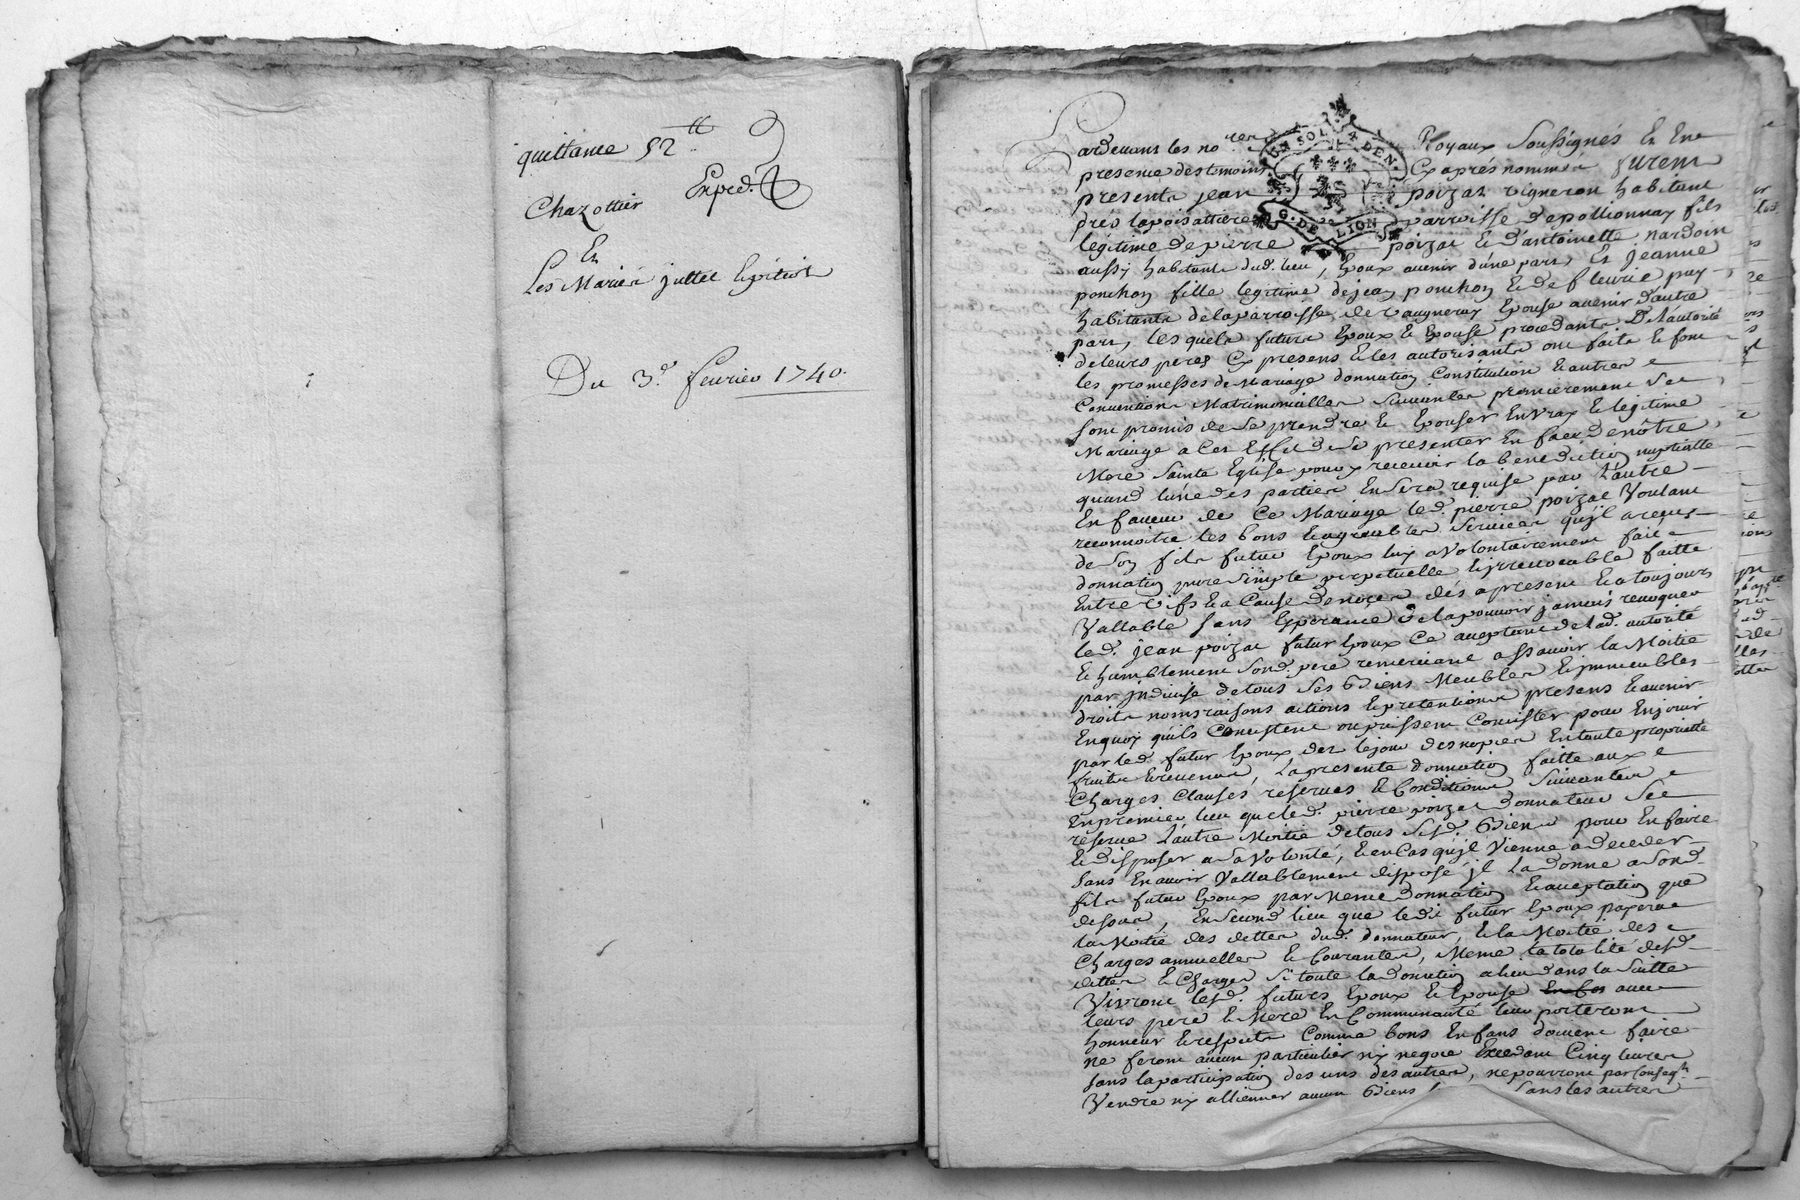 quittance 52ᵗᵗ
Exped.
Chazottier
Et
Les Mariés juttet
Du 3ᵉ. fevrier 1740.
GN SOL 4 DEN.
G. DE LION
Pardevant les no.res Royaux Soussignés Et En
presence des temoins Cy aprés nommés furent
presents jean poizat vigneron habitant
prés la poisattiere parroisse de pollionnay fils
legitime de pierre poizat & d'antoinette nardoin
aussy habitants dud. lieu, Epoux avenir d'une part, Et jeanne
ponchon fille legitime de jean ponchon & de fleurie puy
habitants de la parroisse de vaugneray Epouse avenir d'autre
part, lesquels futurs Epoux & Epouse procedants De l'autorité
de leurs peres Cy presens & les autorisants ont faits & font
les promesses de Mariage donnation Constitution & autres
Conventions Matrimonialles Suivantes premierement Se
sont promis de se prendre & Epouser En vray & legitime
Mariage a Cet Effet de se presenter En face de nôtre
Mere Sainte Eglise pour y recevoir la benediction nuptialle
quand l'une des parties En sera requise par L'autre
En faveur de Ce Mariage led. pierre poizat Voulant
reconnoitre les bons & agreables services qu'jl a reçus
de son fils futur Epoux luy a volontairement fait
donnation pure simple perpetuelle & jrrevocable faitte
Entre vifs & a Cause de nôces dés a present & a toujours
Vallable sans Esperance de la pouvoir jamais revoquer
led. jean poizat futur Epoux Ce acceptant de lad. autorité
& humblement sond. pere remerciant assavoir la Moitié
par jndivise de tous ses Biens Meubles & jmmeubles
droits noms raisons actions & pretentions presens & avenir
En quoy qu'ils Consistent ou puissent Consister pour En jouir
par led. futur Epoux des le jour des nopces En toute proprieté
fruits & revenus, La presente donnation faitte aux
Charges Clauses reserves & Conditions Suivantes
En premier lieu que led. pierre poizat Donnateur se
reserve L'autre Moitié de tous sesd. Biens pour En faire
& disposer a sa Volonté, & en Cas qu'jl Vienne a deceder
sans En avoir Vallablement disposé jl La donne a sond.
fils futur Epoux par Meme Donnation & acceptation que
dessus, En second lieu que ledit futur Epoux payera
la Moitié des dettes dud. donnateur, & la Moitié des
Charges annuelles & Courantes, Meme la totalité desd.
dettes & Charges si toute la Donation a lieu dans la suitte
Vivront lesd. futurs Epoux & Epouse avec
leurs pere & Mere En Communauté leur porteront
honneur & respects Comme bons Enfans doivent faire
ne feront aucun particulier ny negoce Excedant Cinq livres
sans la participation des uns des autres, ne pourront par Conseqt.
Vendre ny alliener aucun Biens sans les autres